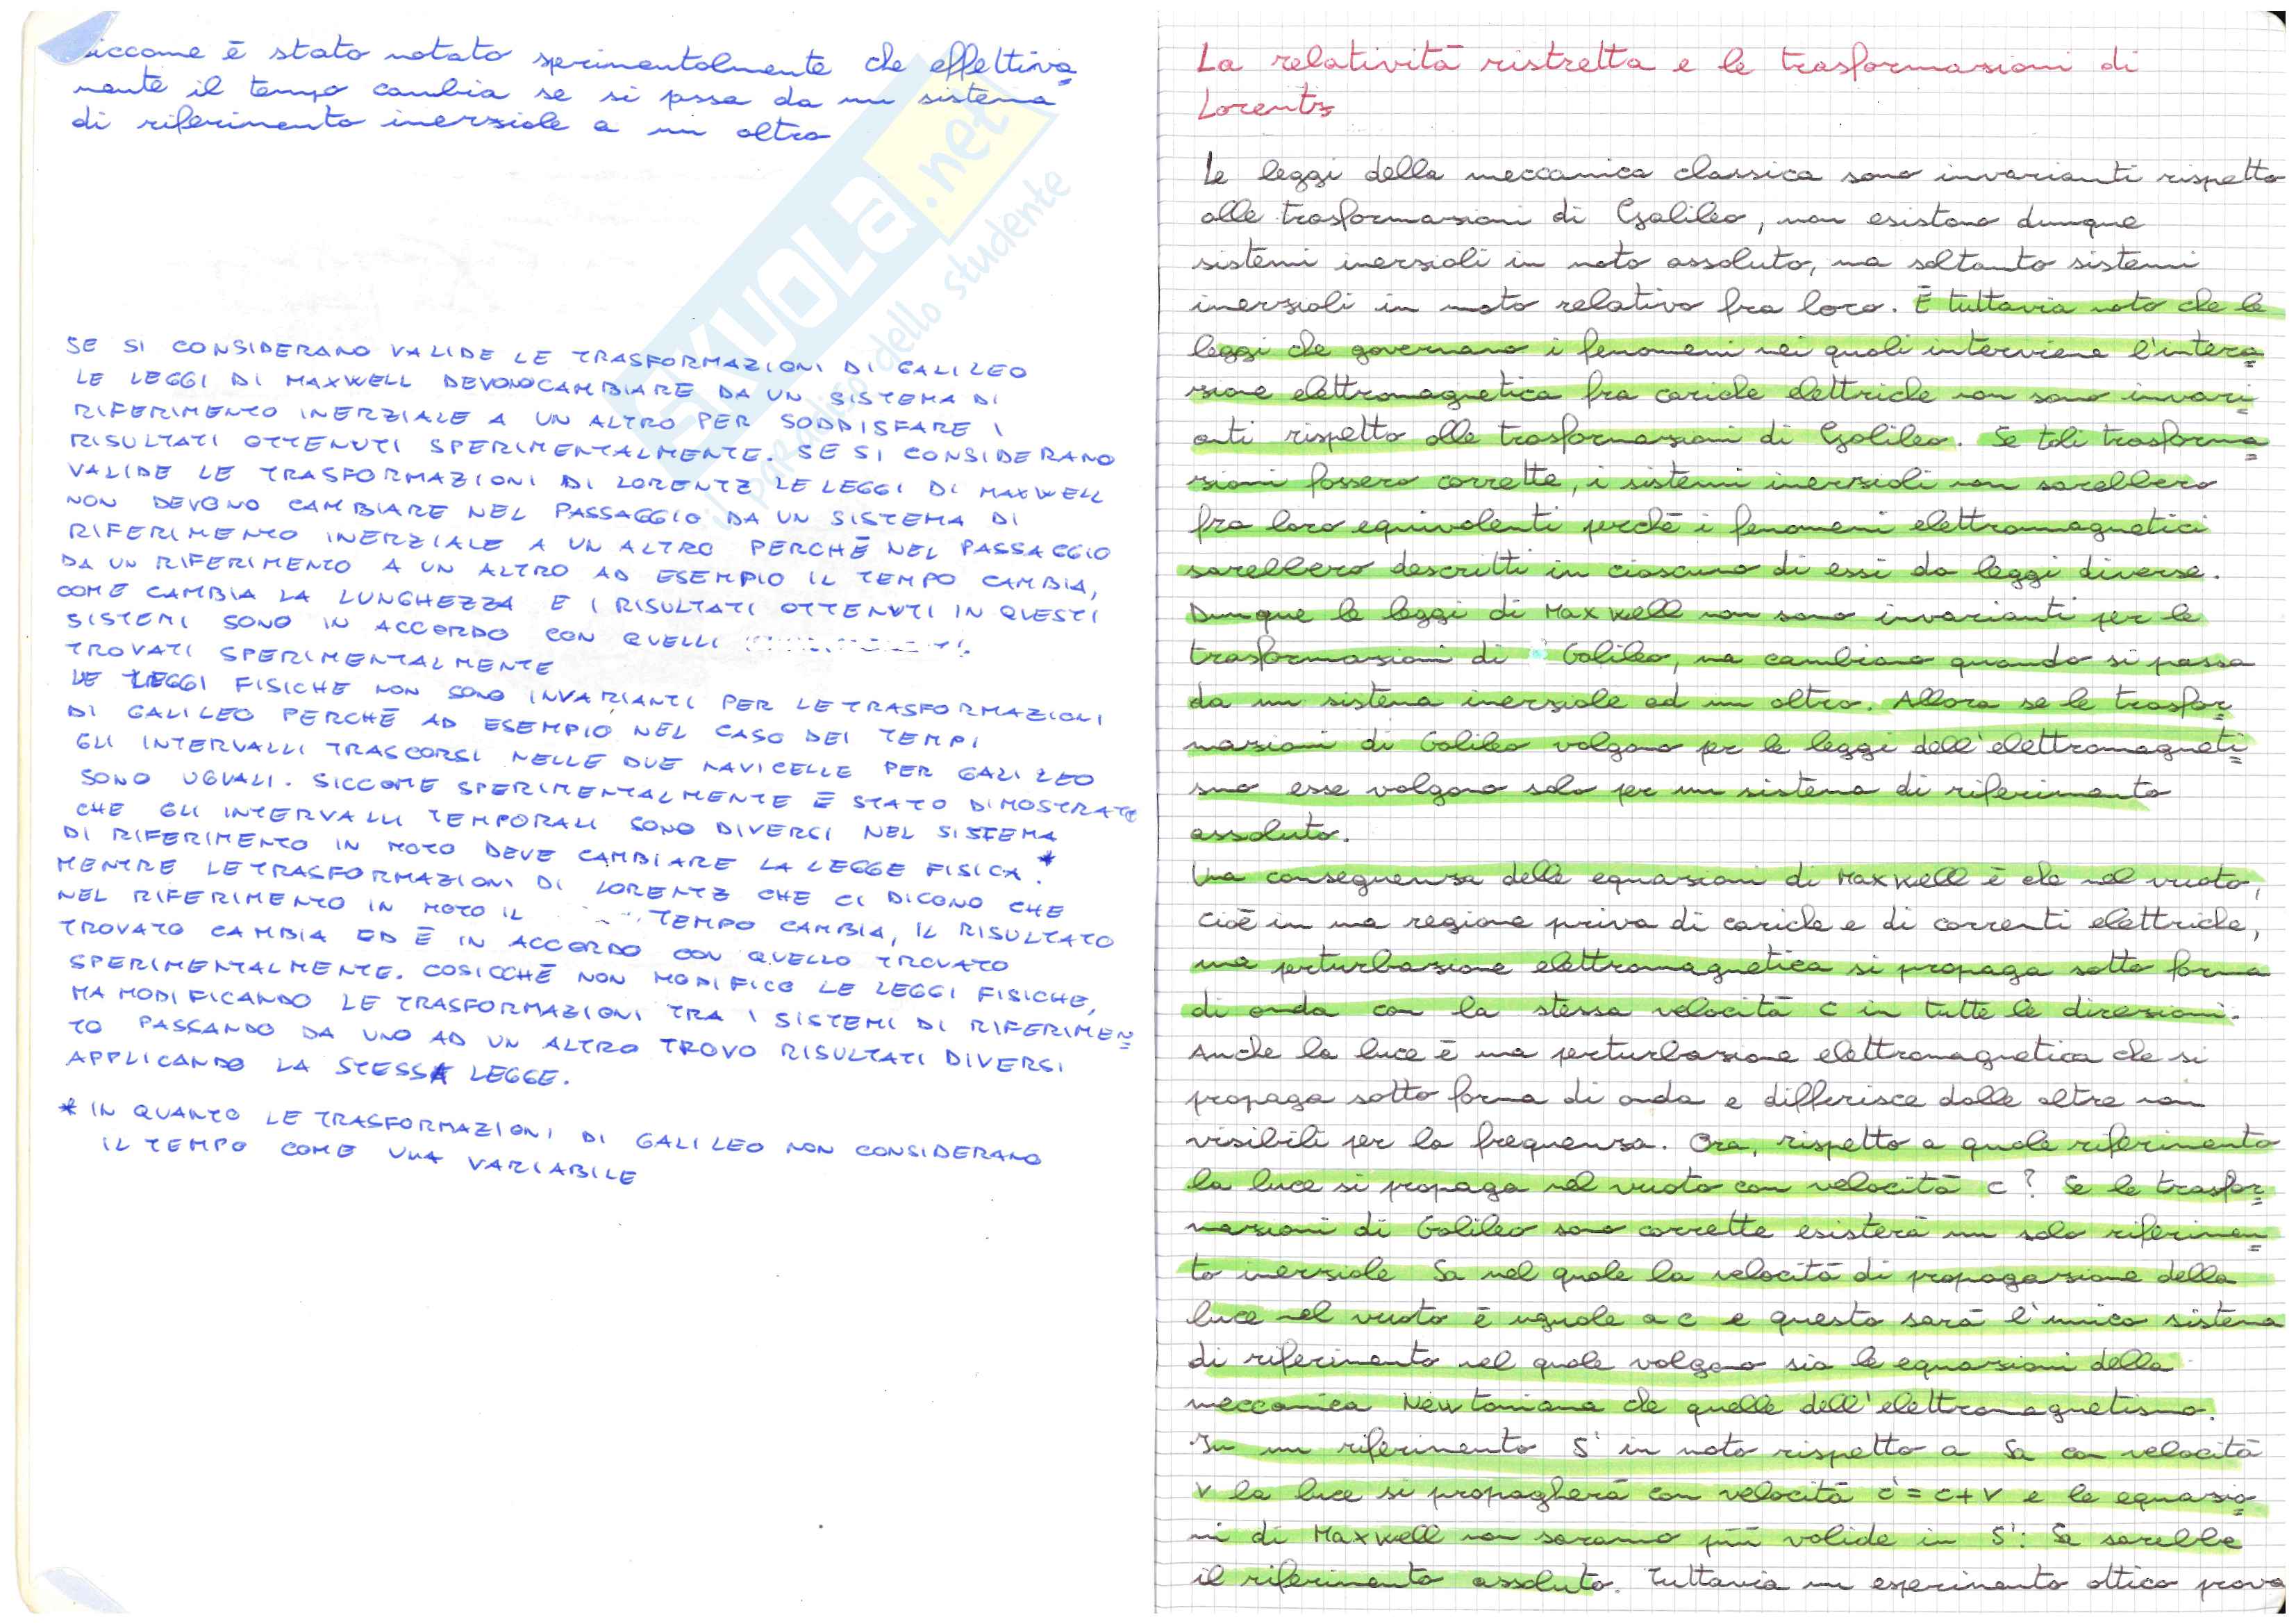 siccome è stato notato sperimentalmente che effettiva
mente il tempo cambia se si passa da un sistema
di riferimento inerziale a un altro
SKUOLA.net
il paradiso dello studente
SE SI CONSIDERANO VALIDE LE TRASFORMAZIONI DI GALILEO
LE LEGGI DI MAXWELL DEVONO CAMBIARE DA UN SISTEMA DI
RIFERIMENTO INERZIALE A UN ALTRO PER SODDISFARE I
RISULTATI OTTENUTI SPERIMENTALMENTE. SE SI CONSIDERANO
VALIDE LE TRASFORMAZIONI DI LORENTZ LE LEGGI DI MAXWELL
NON DEVONO CAMBIARE NEL PASSAGGIO DA UN SISTEMA DI
RIFERIMENTO INERZIALE A UN ALTRO PERCHÉ NEL PASSAGGIO
DA UN RIFERIMENTO A UN ALTRO AD ESEMPIO IL TEMPO CAMBIA,
COME CAMBIA LA LUNGHEZZA E I RISULTATI OTTENUTI IN QUESTI
SISTEMI SONO IN ACCORDO CON QUELLI
TROVATI SPERIMENTALMENTE
LE LEGGI FISICHE NON SONO INVARIANTI PER LE TRASFORMAZIONI
DI GALILEO PERCHÉ AD ESEMPIO NEL CASO DEI TEMPI
GLI INTERVALLI TRASCORSI NELLE DUE NAVICELLE PER GALILEO
SONO UGUALI. SICCOME SPERIMENTALMENTE È STATO DIMOSTRATO
CHE GLI INTERVALLI TEMPORALI SONO DIVERSI NEL SISTEMA
DI RIFERIMENTO IN MOTO DEVE CAMBIARE LA LEGGE FISICA. *
MENTRE LE TRASFORMAZIONI DI LORENTZ CHE CI DICONO CHE
NEL RIFERIMENTO IN MOTO IL TEMPO CAMBIA, IL RISULTATO
TROVATO CAMBIA ED È IN ACCORDO CON QUELLO TROVATO
SPERIMENTALMENTE. COSICCHÉ NON MODIFICO LE LEGGI FISICHE,
MA MODIFICANDO LE TRASFORMAZIONI TRA I SISTEMI DI RIFERIMEN
TO PASSANDO DA UNO AD UN ALTRO TROVO RISULTATI DIVERSI
APPLICANDO LA STESSA LEGGE.
* IN QUANTO LE TRASFORMAZIONI DI GALILEO NON CONSIDERANO
IL TEMPO COME UNA VARIABILE
La relatività ristretta e le trasformazioni di
Lorentz
Le leggi della meccanica classica sono invarianti rispetto
alle trasformazioni di Galileo, non esistono dunque
sistemi inerziali in moto assoluto, ma soltanto sistemi
inerziali in moto relativo fra loro. È tuttavia noto che le
leggi che governano i fenomeni nei quali interviene l'intera
zione elettromagnetica fra cariche elettriche non sono invari
anti rispetto alle trasformazioni di Galileo. Se tali trasforma
zioni fossero corrette, i sistemi inerziali non sarebbero
fra loro equivalenti perchè i fenomeni elettromagnetici
sarebbero descritti in ciascuno di essi da leggi diverse.
Dunque le leggi di Maxwell non sono invarianti per le
trasformazioni di Galileo, ma cambiano quando si passa
da un sistema inerziale ad un altro. Allora se le trasfor
mazioni di Galileo valgono per le leggi dell'elettromagneti
smo esse valgono solo per un sistema di riferimento
assoluto.
Una conseguenza delle equazioni di Maxwell è che nel vuoto,
cioè in una regione priva di cariche e di correnti elettriche,
una perturbazione elettromagnetica si propaga sotto forma
di onda con la stessa velocità c in tutte le direzioni.
Anche la luce è una perturbazione elettromagnetica che si
propaga sotto forma di onda e differisce dalle altre non
visibili per la frequenza. Ora, rispetto a quale riferimento
la luce si propaga nel vuoto con velocità c? Se le trasfor
mazioni di Galileo sono corrette esisterà un solo riferimen
to inerziale Sa nel quale la velocità di propagazione della
luce nel vuoto è uguale a c e questo sarà l'unico sistema
di riferimento nel quale valgono sia le equazioni della
meccanica Newtoniana che quelle dell'elettromagnetismo.
In un riferimento S' in moto rispetto a Sa con velocità
v la luce si propagherà con velocità c'=c+v e le equazio
ni di Maxwell non saranno più valide in S': Sa sarebbe
il riferimento assoluto. Tuttavia un esperimento ottico prova